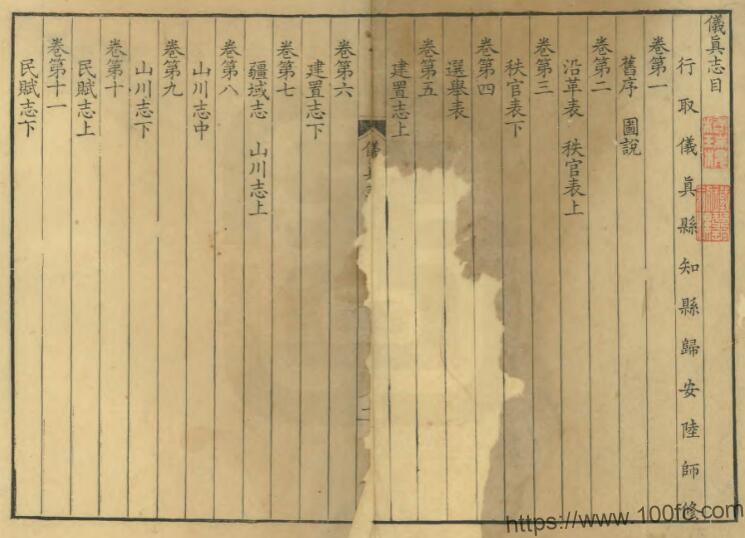 儀眞志目
行取儀眞縣知縣歸安陸師修
卷第一
舊序 圖說
卷第二
沿革表 秩官表上
卷第三
秩官表下
卷第四
選舉表
卷第五
建置志上
儀
卷第六
建置志下
卷第七
疆域志 山川志上
卷第八
山川志中
卷第九
山川志下
卷第十
民賦志上
卷第十一
民賦志下
https://www.100fc.com